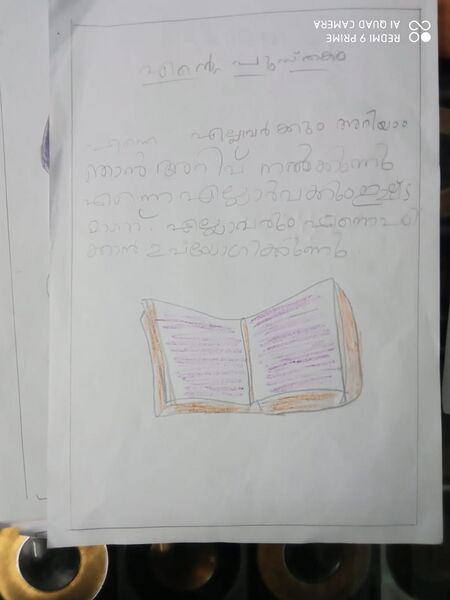 REDMI 9 PRIME
AI QUAD CAMERA
എന്റെ പുസ്തകം
എന്നെ എല്ലാവർക്കും അറിയാം
ഞാൻ അറിവ് നൽകുന്നു
എന്നെ എല്ലാർവക്കും ഇഷ്ട
മാണ്. എല്ലാവരും എന്നെ പഠി
ക്കാൻ ഉപയോഗിക്കുന്നു.